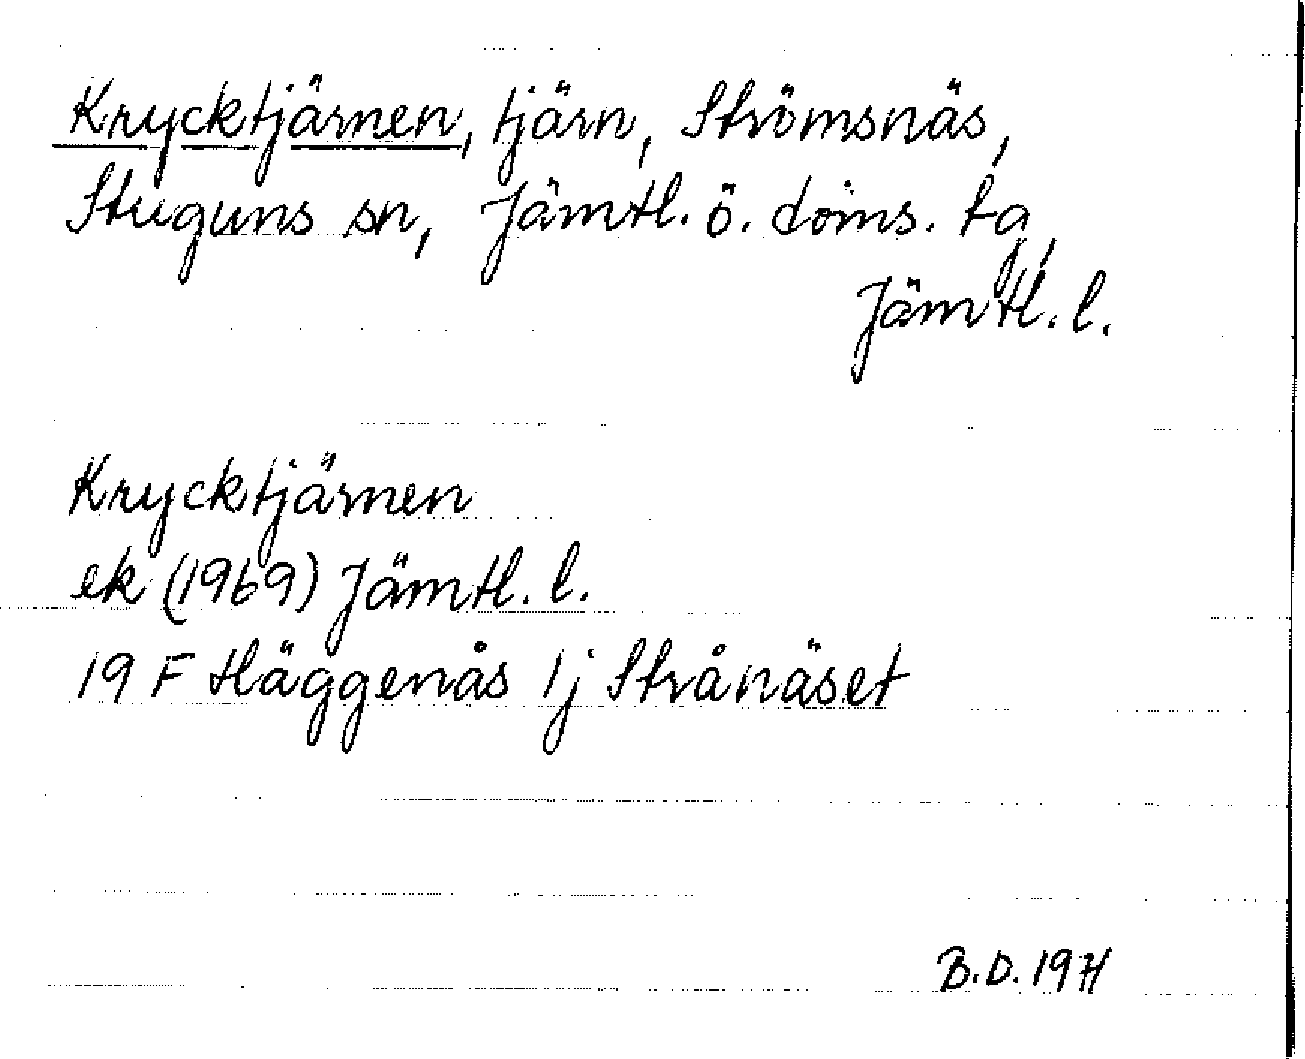 Krycktjärnen, tjärn, Strömsnäs,
Stuguns sn, Jämtl. ö. doms. tg,
Jämtl. l.
Krycktjärnen
ek (1969) Jämtl. l.
19 F Häggenås 1j Strånäset
B.D. 1971